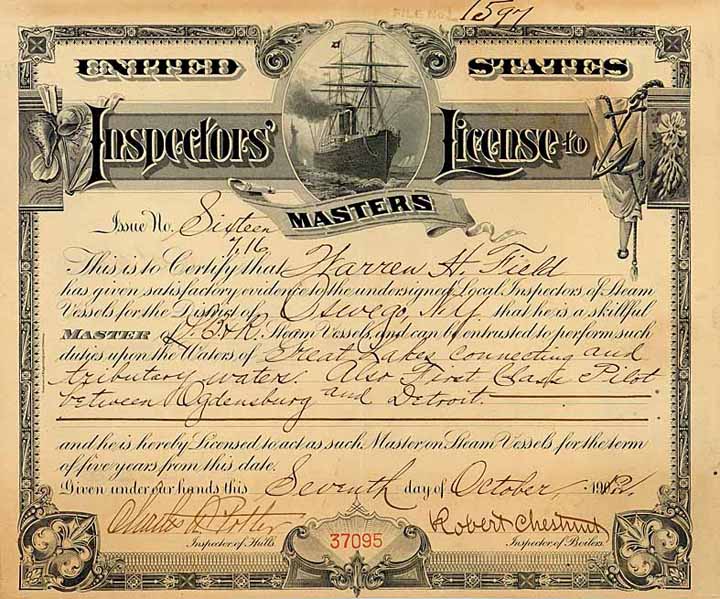 FILE No. 1597
UNITED STATES
Inspectors' License to
MASTERS
Issue No. Sixteen
7,16
This is to Certify that Warren H. Field
has given satisfactory evidence to the undersigned Local Inspectors of Steam
Vessels for the District of Oswego, N.Y. that he is a skillful
MASTER of Steam Vessels, and can be entrusted to perform such
duties upon the Waters of Great Lakes connecting and
tributary waters. Also First Class Pilot
between Ogdensburg and Detroit.
and he is hereby Licensed to act as such Master on Steam Vessels for the term
of five years from this date.
Given under our hands this Seventh day of October, 19
Charles P. Potter Robert Chestnut
Inspector of Hulls. 37095 Inspector of Boilers.